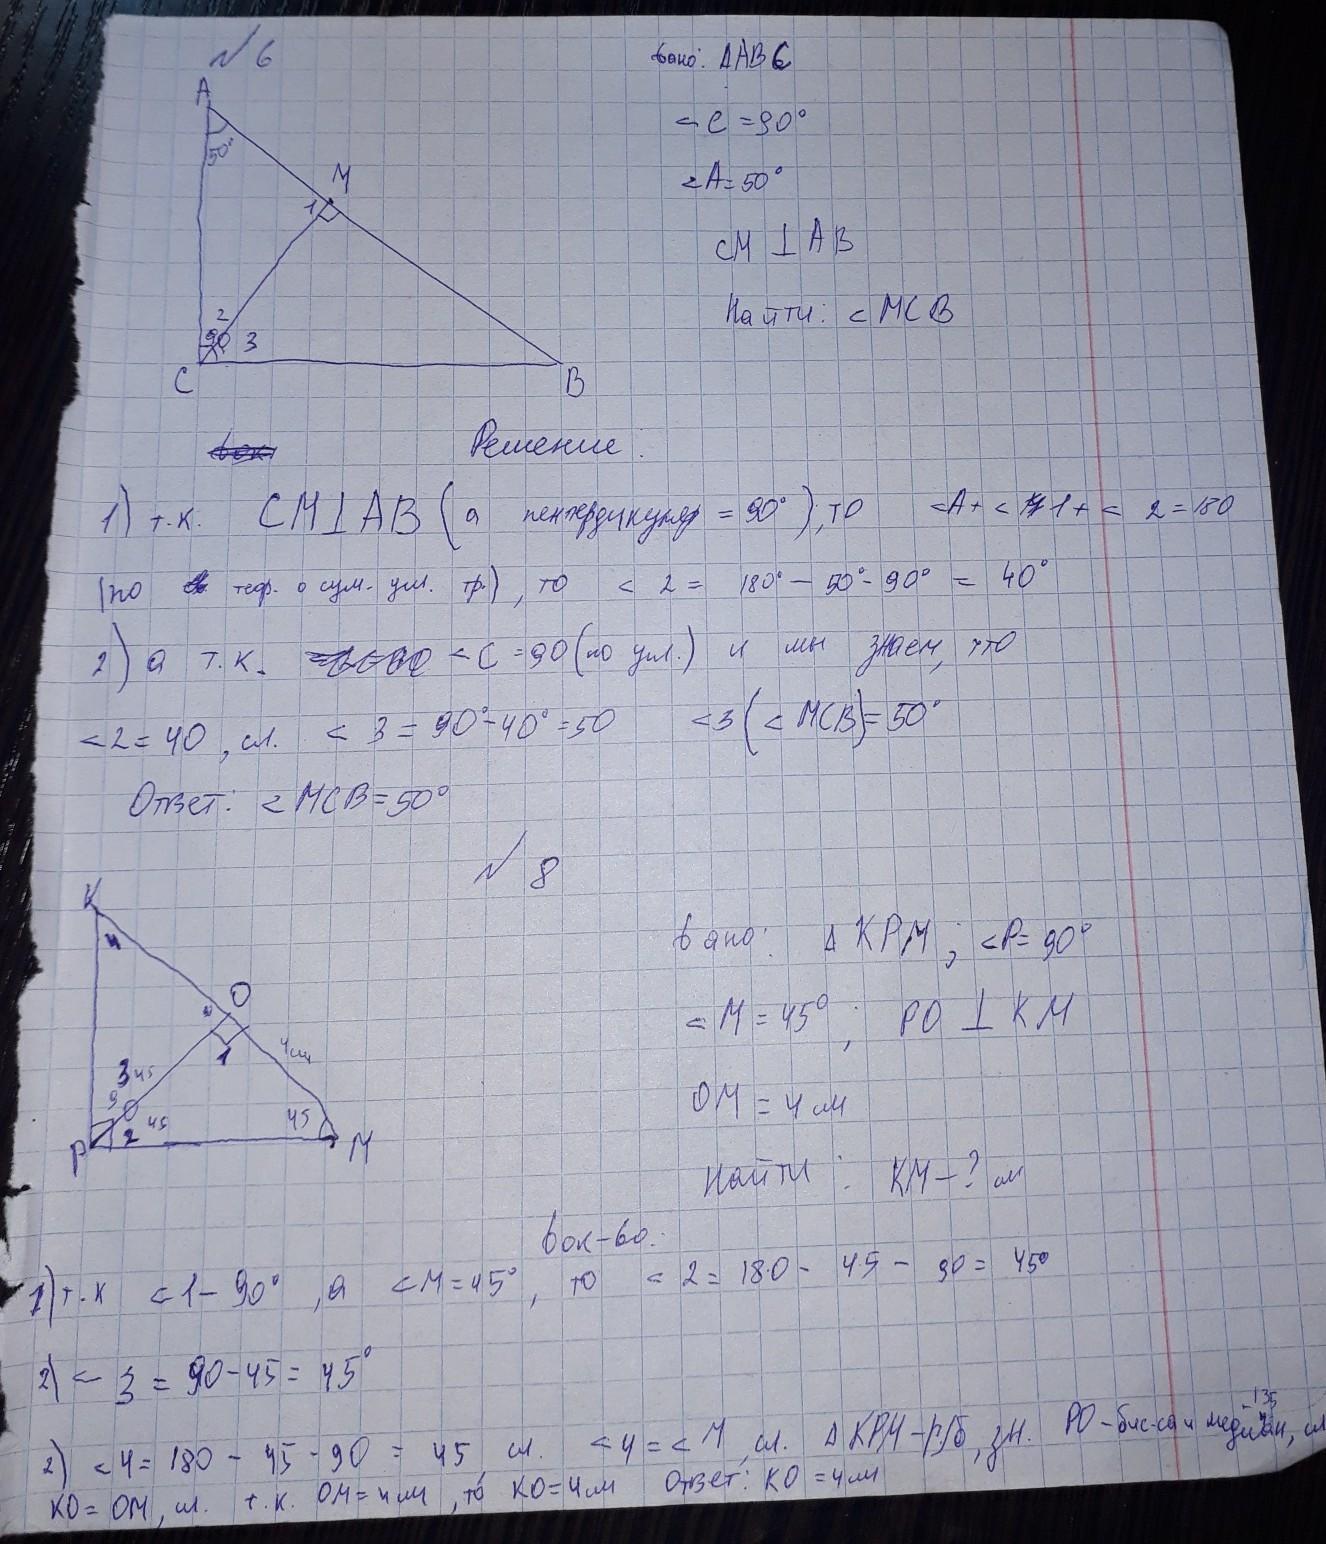 № 6
Дано: ΔABC
<C=90°
<A=50°
CM⊥AB
Найти: <MCB
A
50°
M
1
2
90
3
C
B
Решение:
1) т.к. CM⊥AB (а пенпердикуляр = 90°), то <A+<1+< 2=180
(по теор. о сум. угл. тр.), то < 2= 180°-50°-90° = 40°
2) а т.к. <C=90(по усл.) и мы знаем, что
<2=40, сл. < 3=90°-40°=50 <3(<MCB)=50°
Ответ: <MCB=50°
№ 8
Дано: Δ KPM; <P=90°
<M=45°; PO⊥KM
OM=4см
Найти: KM-? см
K
4
O
1
4см
3 45
2 45
45
P
M
Док-во:
1) т.к <1-90°, а <M=45°, то <2=180-45-90=45°
2) <3=90-45=45°
2) <4=180-45-90=45, сл. <4=<M, сл. ΔKPM-р/б, зн. PO-бис-са и медиан, сл
KO=OM, сл. т.к. OM=4см, то KO=4см Ответ: KO=4см